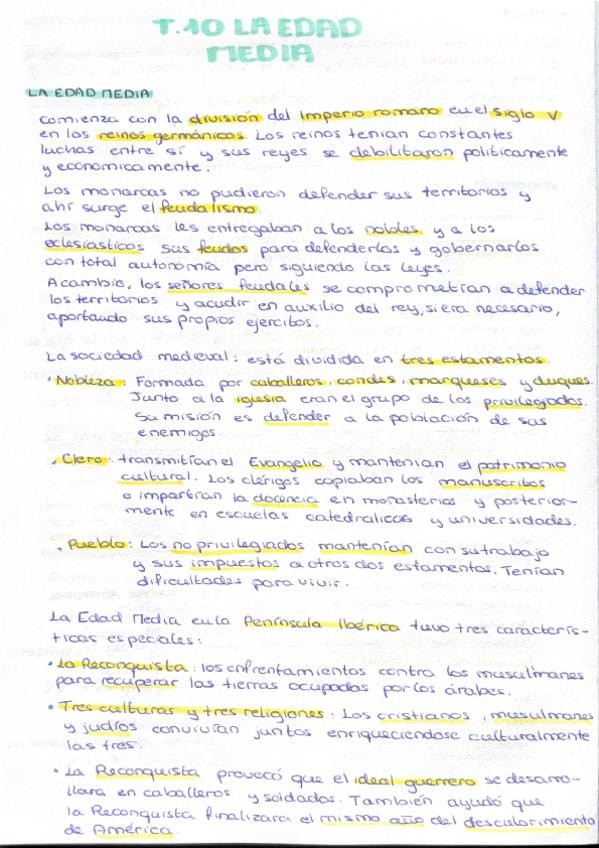 T.10 LA EDAD
MEDIA
LA EDAD MEDIA
comienza con la división del Imperio romano en el siglo V
en los reinos germánicos. Los reinos tenían constantes
luchas entre sí y sus reyes se debilitaron políticamente
y economicamente.
Los monarcas no pudieron defender sus territorios y
ahí surge el feudalismo.
Los monarcas les entregaban a los nobles y a los
eclesiasticos sus feudos para defenderlos y gobernarlos
con total autonomía pero siguiendo las leyes.
A cambio, los señores feudales se comprometían a defender
los territorios y acudir en auxilio del rey, si era necesario,
aportando sus propios ejercitos.
La sociedad medieval: está dividida en tres estamentos.
· Nobleza: Formada por caballeros, condes, marqueses y duques.
Junto a la iglesia eran el grupo de los privilegiados.
Su misión es defender a la población de sus
enemigos.
· Clero: transmitían el Evangelio y mantenían el patrimonio
cultural. Los clérigos copiaban los manuscritos
e impartían la docencia en monasterios y posterior-
mente en escuelas catedralicas y universidades.
· Pueblo: Los no privilegiados mantenían con su trabajo
y sus impuestos a otros dos estamentos. Tenían
dificultades para vivir.
La Edad Media en la Península Ibérica tuvo tres caracterís-
ticas especiales:
· La Reconquista: los enfrentamientos contra los musulmanes
para recuperar las tierras ocupadas por los árabes.
· Tres culturas y tres religiones: Los cristianos, musulmanes
y judíos convivían juntos enriqueciendose culturalmente
las tres.
· La Reconquista provocó que el ideal guerrero se desarro-
llara en caballeros y soldados. También ayudó que
la Reconquista finalizara el mismo año del descubrimiento
de América.